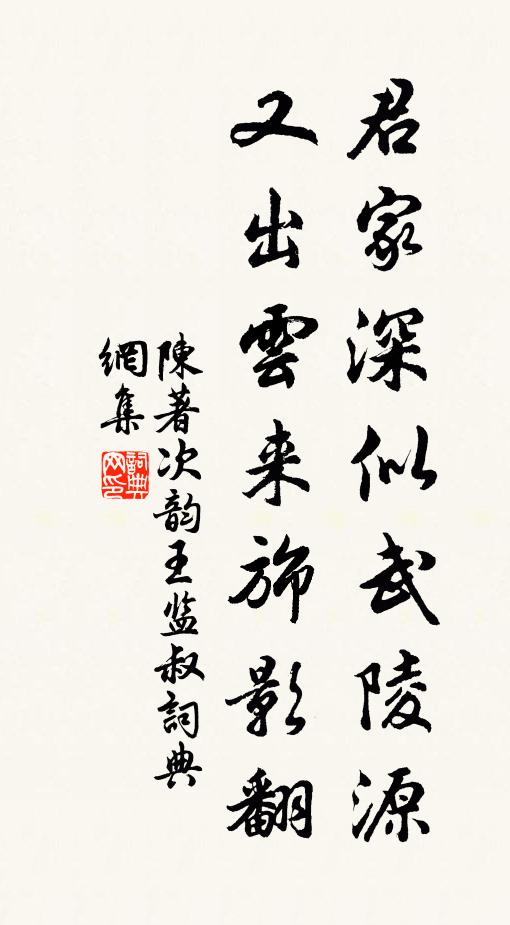 君家深似武陵源
又出雲来斾影翻
陳著次韵王监叔詞典
網集
詞典网印